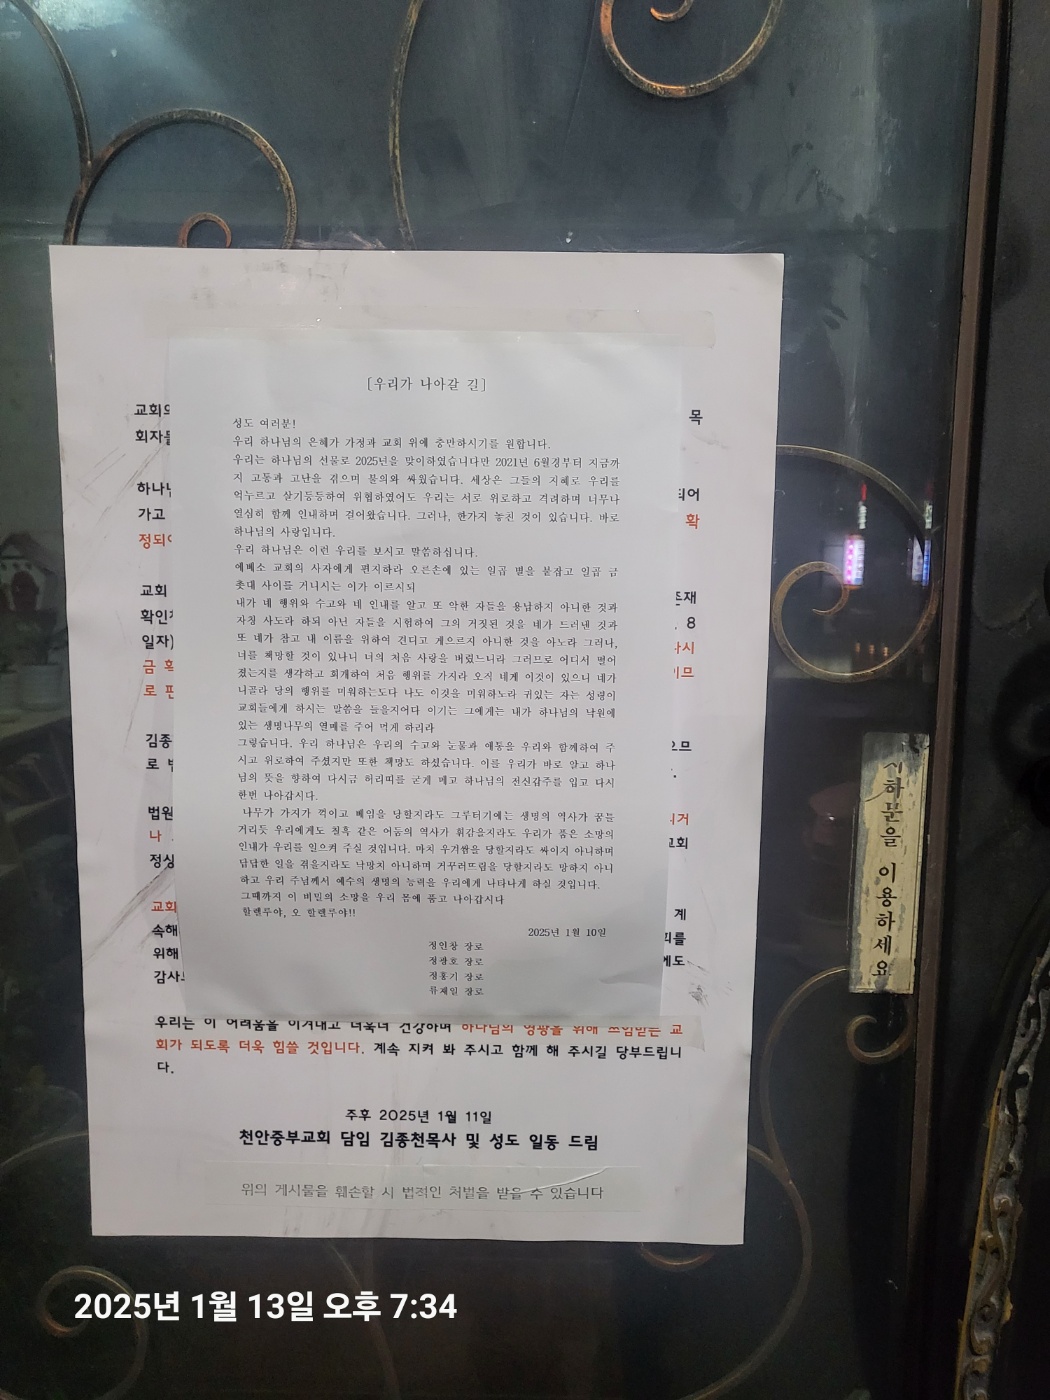 [우리가 나아갈 길]
성도 여러분!
우리 하나님의 은혜가 가정과 교회 위에 충만하시기를 원합니다.
우리는 하나님의 선물로 2025년을 맞이하였습니다만 2021년 6월경부터 지금까
지 고통과 고난을 겪으며 불의와 싸웠습니다. 세상은 그들의 지혜로 우리를
억누르고 살기등등하여 위협하였어도 우리는 서로 위로하고 격려하며 너무나
열심히 함께 인내하며 걸어왔습니다. 그러나, 한가지 놓친 것이 있습니다. 바로
하나님의 사랑입니다.
우리 하나님은 이런 우리를 보시고 말씀하십니다.
에베소 교회의 사자에게 편지하라 오른손에 있는 일곱 별을 붙잡고 일곱 금
촛대 사이를 거니시는 이가 이르시되
내가 네 행위와 수고와 네 인내를 알고 또 악한 자들을 용납하지 아니한 것과
자칭 사도라 하되 아닌 자들을 시험하여 그의 거짓된 것을 네가 드러낸 것과
또 네가 참고 내 이름을 위하여 견디고 게으르지 아니한 것을 아노라 그러나,
너를 책망할 것이 있나니 너의 처음 사랑을 버렸느니라 그러므로 어디서 떨어
졌는지를 생각하고 회개하여 처음 행위를 가지라 오직 네게 이것이 있으니 네가
니골라 당의 행위를 미워하는도다 나도 이것을 미워하노라 귀있는 자는 성령이
교회들에게 하시는 말씀을 들을지어다 이기는 그에게는 내가 하나님의 낙원에
있는 생명나무의 열매를 주어 먹게 하리라
그렇습니다. 우리 하나님은 우리의 수고와 눈물과 애통을 우리와 함께하여 주
시고 위로하여 주셨지만 또한 책망도 하셨습니다. 이를 우리가 바로 알고 하나
님의 뜻을 향하여 다시금 허리띠를 굳게 메고 하나님의 전신갑주를 입고 다시
한번 나아갑시다.
나무가 가지가 꺽이고 베임을 당할지라도 그루터기에는 생명의 역사가 꿈틀
거리듯 우리에게도 칠흑 같은 어둠의 역사가 휘감을지라도 우리가 품은 소망의
인내가 우리를 일으켜 주실 것입니다. 마치 우겨쌈을 당할지라도 싸이지 아니하며
답답한 일을 겪을지라도 낙망치 아니하며 거꾸러뜨림을 당할지라도 망하지 아니
하고 우리 주님께서 예수의 생명의 능력을 우리에게 나타나게 하실 것입니다.
그때까지 이 비밀의 소망을 우리 몸에 품고 나아갑시다
할렐루야, 오 할렐루야!!
2025년 1월 10일
정인창 장로
정광호 장로
정홍기 장로
류재일 장로
교회의 목
회자들
하나님 되어
가고 확
정되어
교회 존재
확인 . 8
일자) 다시
금 확 이므
로 판
김종 으므
로 .
법원
나
정상 교회
교회 계
속해
위해 에도
감사
우리는 이 어려움을 이겨내고 더욱더 건강하며 하나님의 영광을 위해 쓰임받는 교
회가 되도록 더욱 힘쓸 것입니다. 계속 지켜 봐 주시고 함께 해 주시길 당부드립니
다.
주후 2025년 1월 11일
천안중부교회 담임 김종천목사 및 성도 일동 드림
위의 게시물을 훼손할 시 법적인 처벌을 받을 수 있습니다
지하문을 이용하세요
2025년 1월 13일 오후 7:34